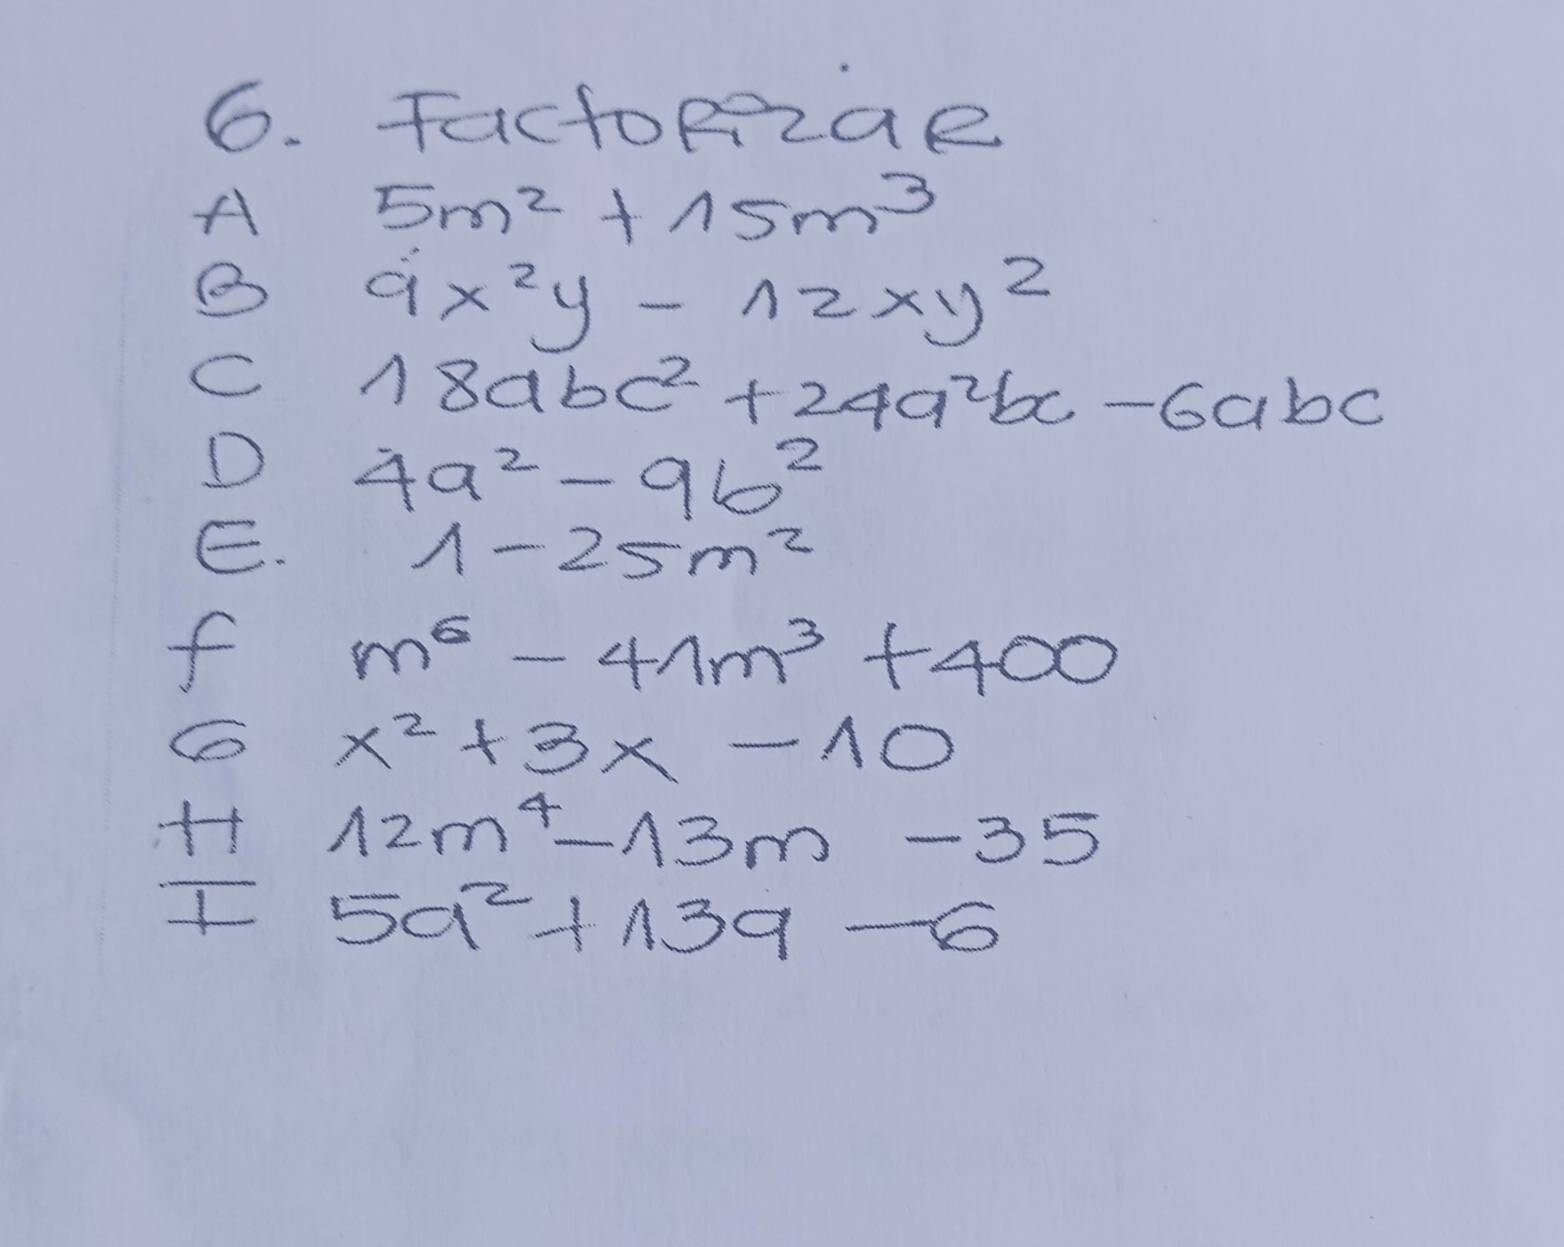 6. Factorizar
A 5m² + 15m³
B 9x²y - 12xy²
C 18abc² + 24a²bc - 6abc
D 4a² - 9b²
E. 1 - 25m²
f m⁶ - 41m³ + 400
G x² + 3x - 10
H 12m⁴ - 13m - 35
I 5a² + 13a - 6